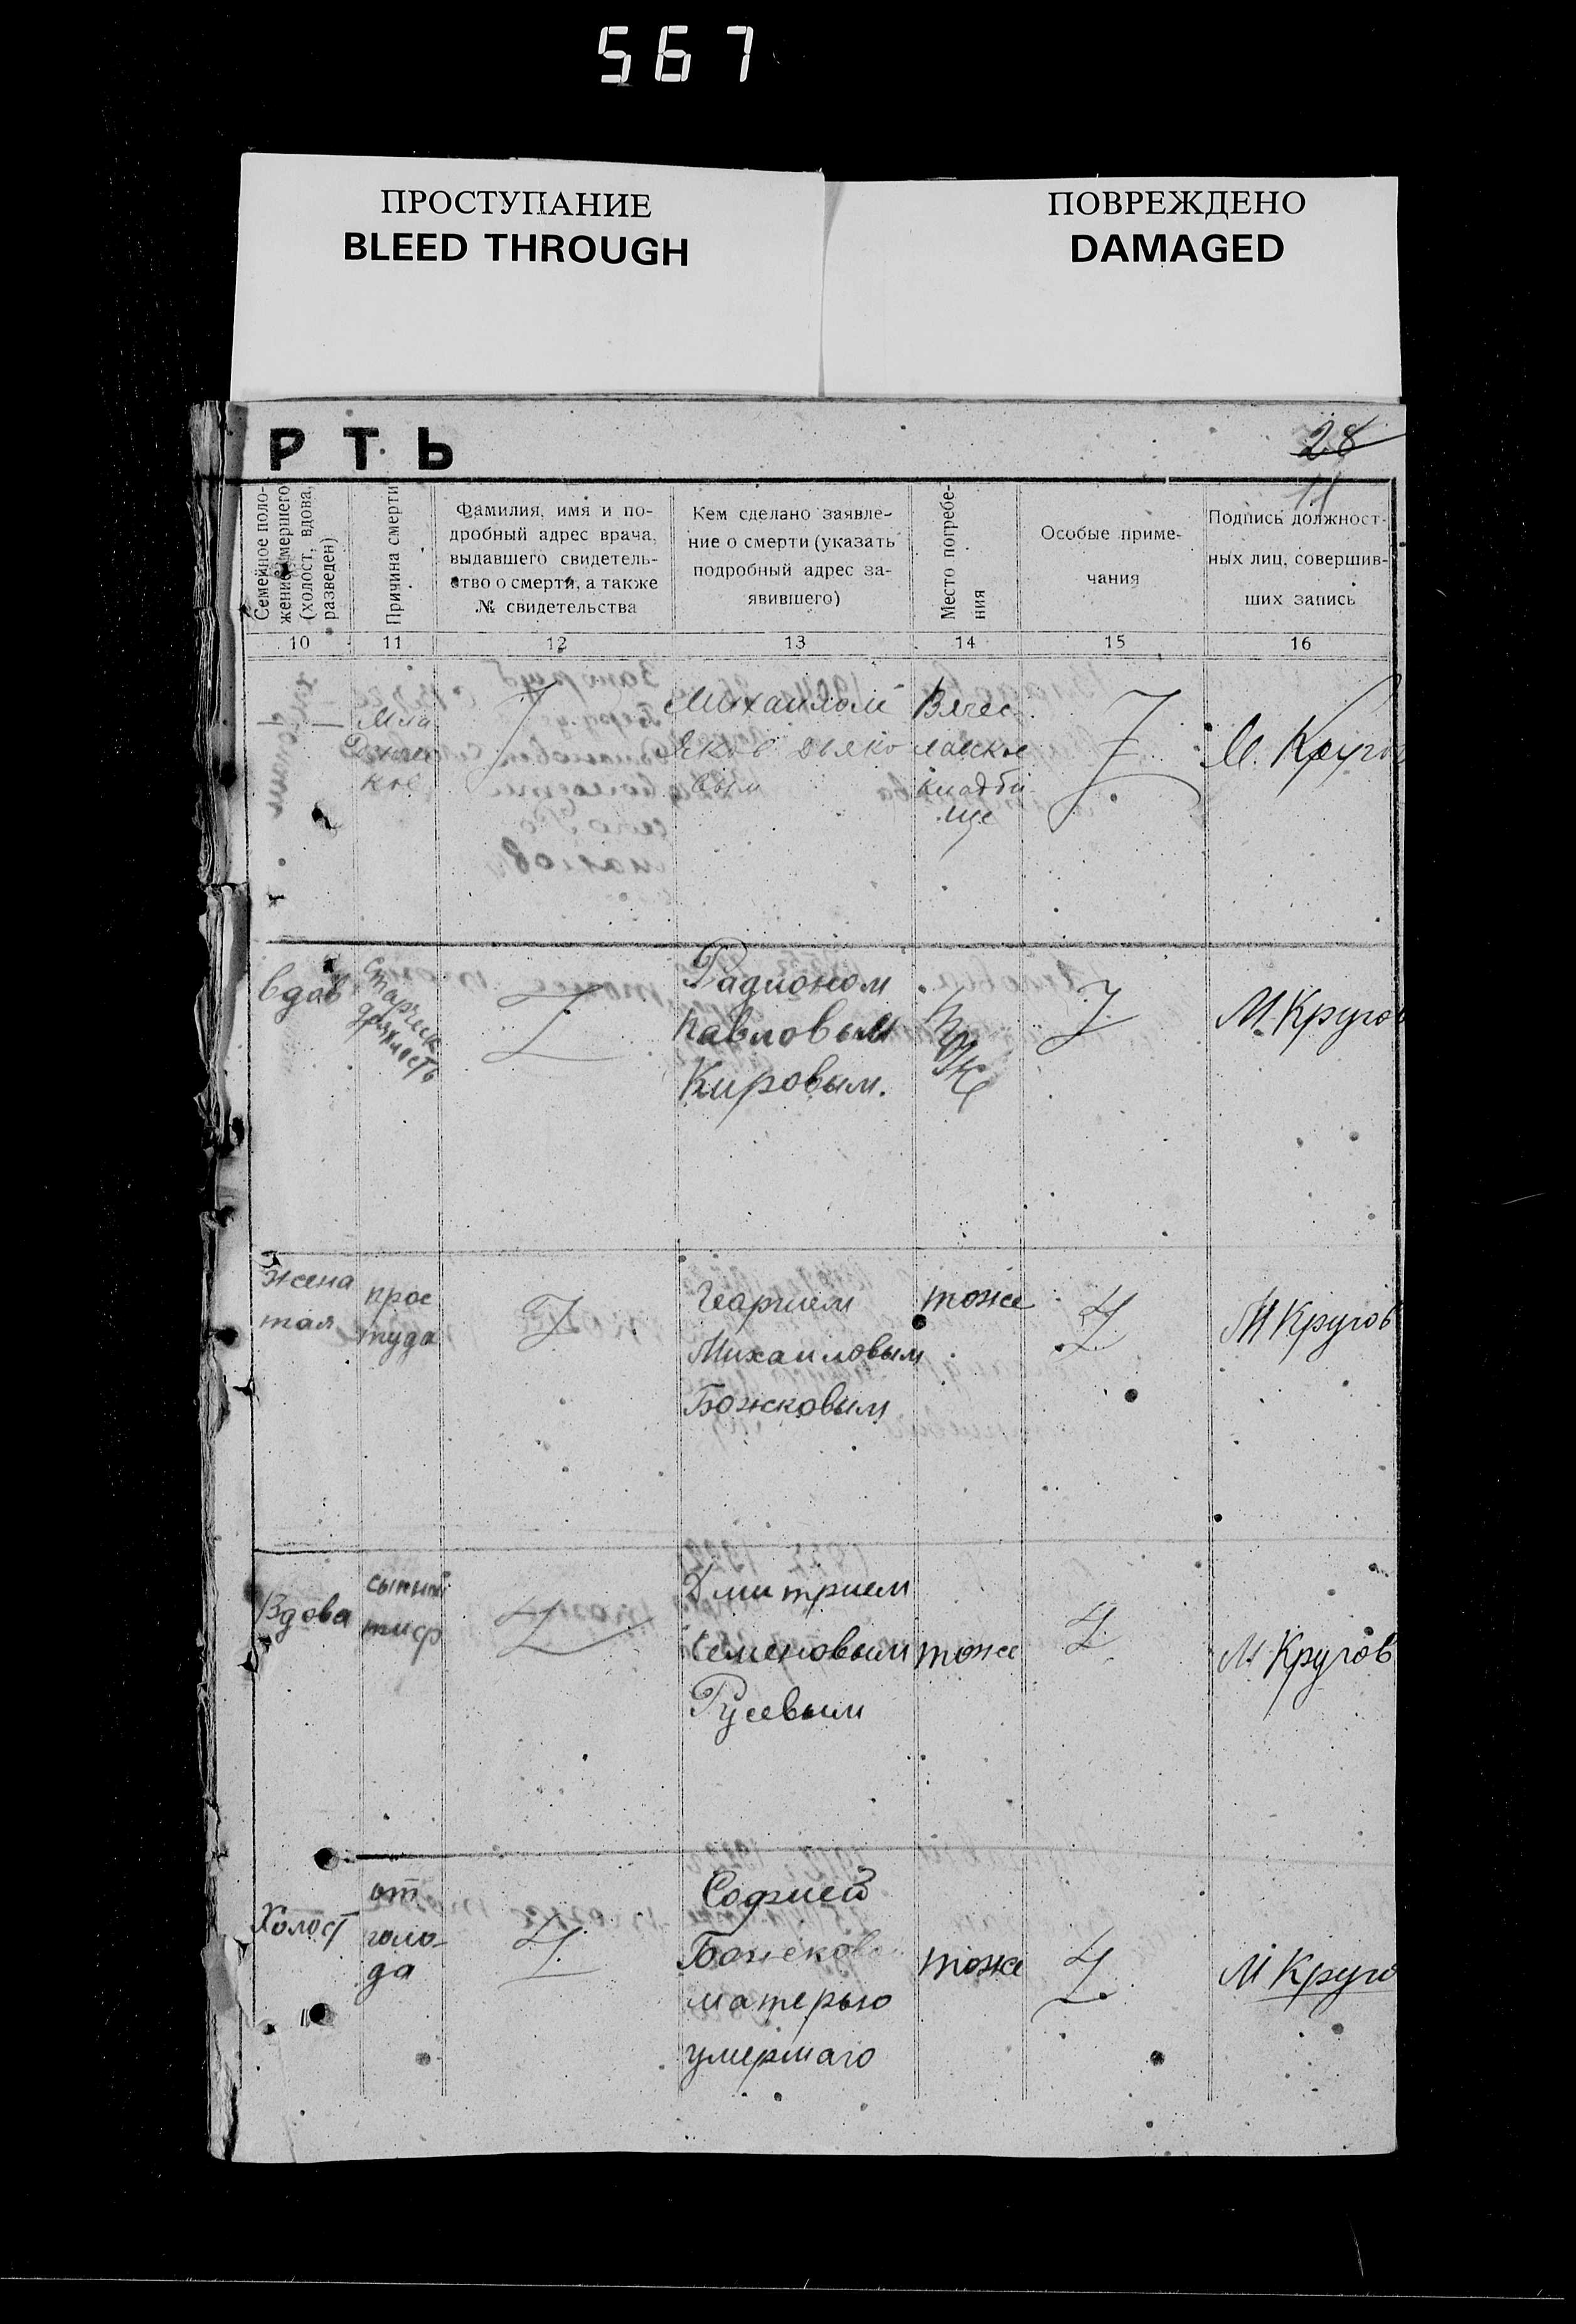 567
ПРОСТУПАНИЕ
BLEED THROUGH
ПОВРЕЖДЕНО
DAMAGED
РТЬ
28
11
Семейное поло-
жение умершего
(холост, вдова,
разведен)
Причина смерти
Фамилия, имя и по-
дробный адрес врача,
выдавшего свидетель-
ство о смерти, а также
№ свидетельства
Кем сделано заявле-
ние о смерти (указать
подробный адрес за-
явившего)
Место погребе-
ния
Особые приме-
чания
Подпись должност-
ных лиц, совершив-
ших запись
10
11
12
13
14
15
16
Михаилом
кладби
ще
М. Кругов
вдов
старческ
дряхлость
Радионом
Павловым
Кировым.
М. Кругов
жена
тая
прос
туда
Михаиловым
Божковым
тоже
М Кругов
Вдова
сыпный
тиф
Дмитрием
Семеновым
Русевым
тоже
М Кругов
Холост
от
голо-
да
Софией
Божков
матерью
умершаго
тоже
М Круго